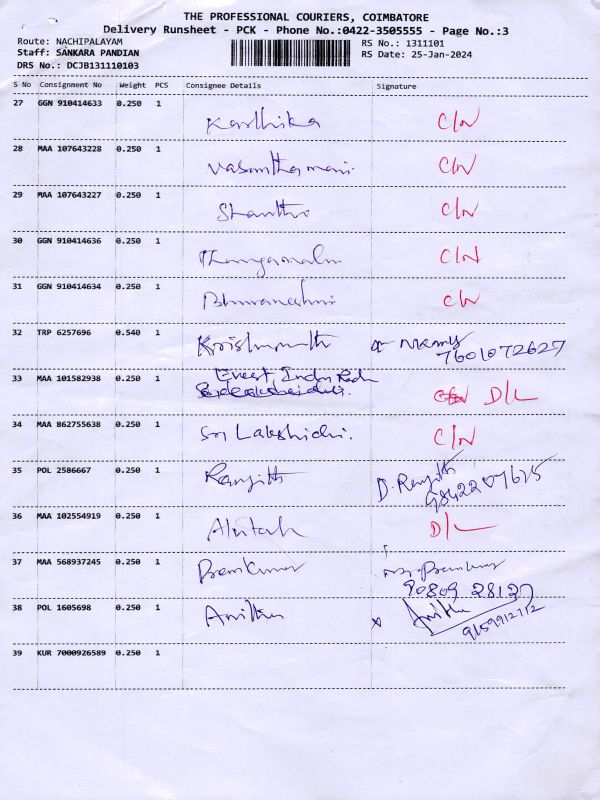 THE PROFESSIONAL COURIERS, COIMBATORE
Delivery Runsheet - PCK - Phone No.:0422-3505555 - Page No.:3
Route: NACHIPALAYAM RS No.: 1311101
Staff: SANKARA PANDIAN RS Date: 25-Jan-2024
DRS No.: DCJB131110103
S No Consignment No Weight PCS Consignee Details Signature
27 GGN 910414633 0.250 1
Karthika C/N
28 MAA 107643228 0.250 1
Vasanthamani C/N
29 MAA 107643227 0.250 1
Shanthi C/N
30 GGN 910414636 0.250 1
C/N
31 GGN 910414634 0.250 1
Bhuvaneshwari C/N
32 TRP 6257696 0.540 1
7601072627
33 MAA 101582938 0.250 1
D/L
34 MAA 862755638 0.250 1
Sri Lakshidhi. C/N
35 POL 2586667 0.250 1
Ranjith D. Ranjith
36 MAA 102554919 0.250 1
D/L
37 MAA 568937245 0.250 1
PremKumar
90809 28127
38 POL 1605698 0.250 1
Anitha
9159912712
39 KUR 7000926589 0.250 1